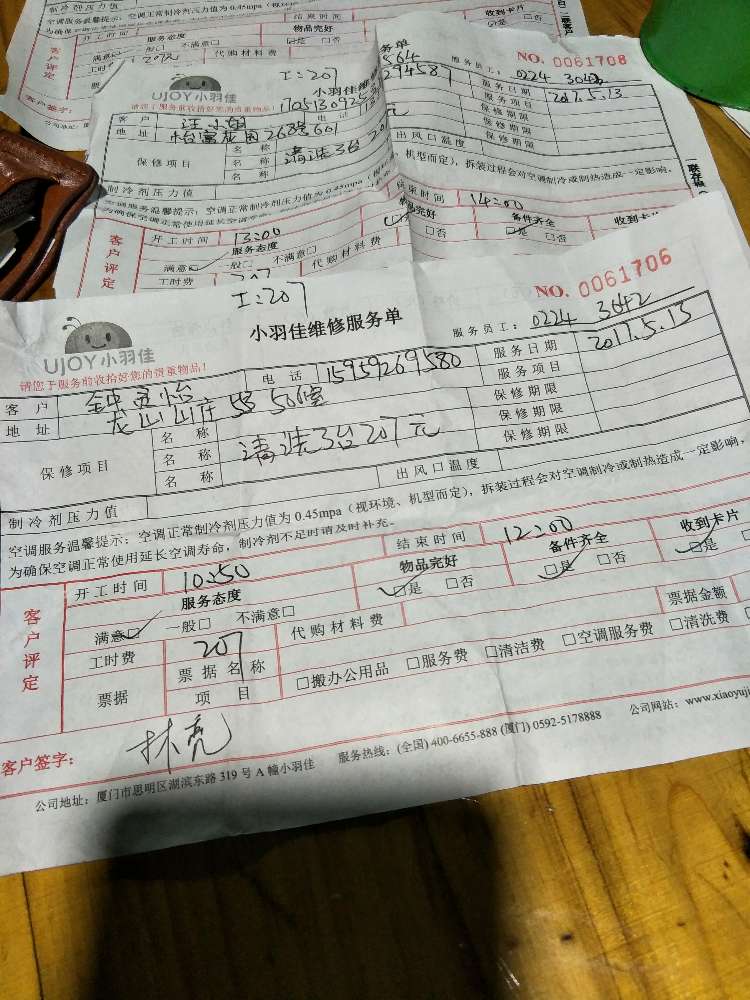 制冷剂压力值
空调服务温馨提示：空调正常制冷剂压力值为0.45mpa（视
结束时间
物品完好
收到卡片
开工时间
满意 一般□ 不满意□
代购材料费
☑是 □否
工时费 207元
客户评定
客户签字：
I:207
小羽佳维修服务单
NO. 0061708
服务员工： 0224 3042
UJOY小羽佳
请您于服务前收拾好您的贵重物品！
服务日期 2017.5.13
服务项目
保修期限
保修期限
保修期限
客户 汪小姐
电话
地址 怡富花园268号601
保修项目
名称 清洗3台207元
名称
名称
出风口温度
制冷剂压力值
机型而定），拆装过程会对空调制冷或制热造成一定影响，
空调服务温馨提示：空调正常制冷剂压力值为0.45mpa（视环境
开工时间 13:00
结束时间 14:00
服务态度
物品完好
备件齐全
收到卡片
满意☑ 一般□ 不满意□
☑是 □否
☑是 □否
工时费 207
代购材料费
客户评定
I:207
小羽佳维修服务单
NO. 0061706
服务员工： 0224 3642
UJOY小羽佳
请您于服务前收拾好您的贵重物品！
客户
电话 15959269580
服务日期 2017.5.13
地址 龙山山庄
服务项目
保修项目
名称 清洗3台207元
名称
名称
保修期限
保修期限
保修期限
制冷剂压力值
出风口温度
空调服务温馨提示：空调正常制冷剂压力值为0.45mpa（视环境、机型而定），拆装过程会对空调制冷或制热造成一定影响，
为确保空调正常使用延长空调寿命，制冷剂不足时请及时补充。
客户评定
开工时间 10:50
结束时间 12:00
服务态度
物品完好
备件齐全
收到卡片
满意☑ 一般□ 不满意□
☑是 □否
☑是 □否
☑是
工时费 207
代购材料费
票据金额
票据
票据名称
项目
□搬办公用品 □服务费 □清洁费 □空调服务费 □清洗费
客户签字： 林亮
公司地址：厦门市思明区湖滨东路319号A幢小羽佳 服务热线：(全国) 400-6655-888 (厦门) 0592-5178888 公司网站：www.xiaoyuji